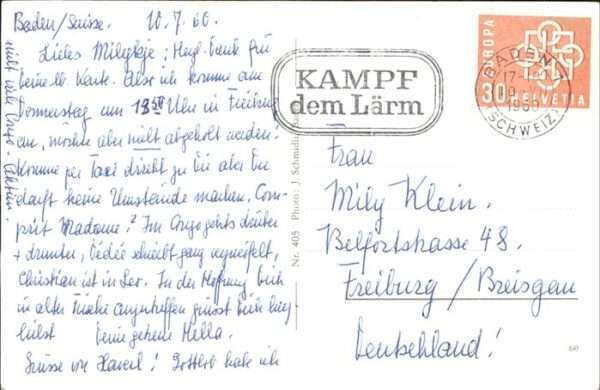 Baden/Suisse. 10.7.60.
Liebes Milykje; Hzgl. Dank für
Deine lb Karte. Also ich komme am
Donnerstag um 13 50 Uhr in Freiburg
an, möchte aber nicht abgeholt werden!
Komme per Taxi direkt zu Dir aber Du
darfst keine Umstände machen, Com-
pris Madame? Im Congo gehts drüber
+ drunter, schreibt ganz verzweifelt,
Christian ist in Leo. In der Hoffnung Dich
in alter Frische anzutreffen grüsst Dich
Deine Hella.
Grüsse von! Gottlob habe ich
nicht
KAMPF
dem Lärm
BADEN
17-
1960
(SCHWEIZ)
EUROPA
30 HELVETIA
Nr. 405 Photo: J. Schmidli
Frau
Mily Klein.
Belfortstrasse 48.
Freiburg / Breisgau
Deutschland!
60